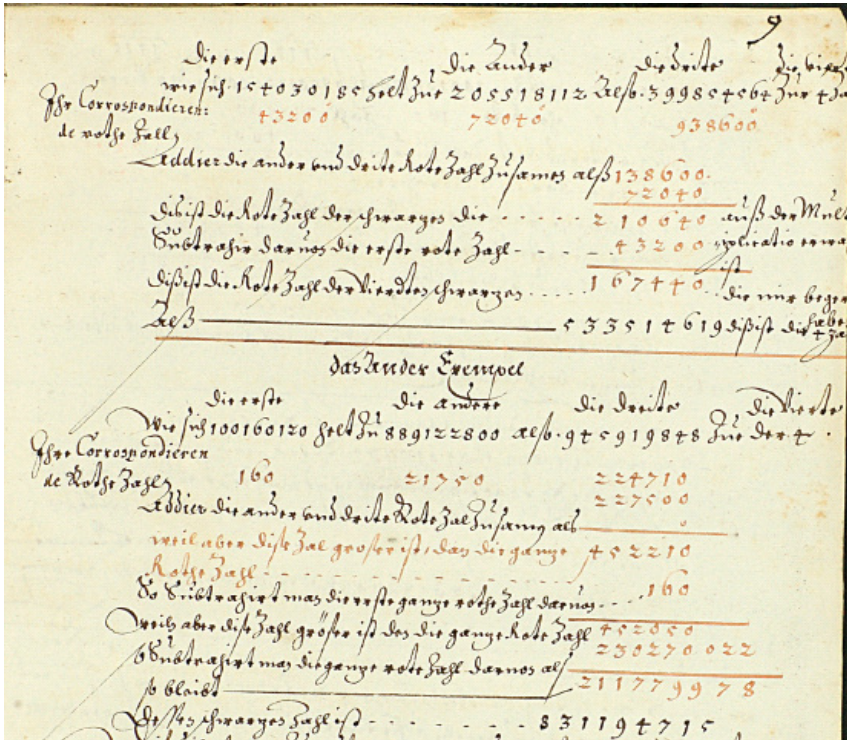 9
die erste die Ander die Drite die vier
wie sich 154030185 helt Zue 205518112 Also 399854564 Zur 4
Ihr Correspondieren:
43200 72040 938600
de rothe Zall
Addier die ander und drite Rote Zahl Zusamen alß 138600.
72040
dis ist die Rote Zahl der schwarzen die - - - - - 210040 auß der Mult
Subtrahir daruon die erste rote Zahl - - - 43200 iplicatio erwa
ist
dißist die Rote Zahl der Vierdten schwarzen ..... 167440 die mir beger
Alß 533514619 diß ist die 4 Za
habe
das Ander Exempel
die erste die andere die dreite die Vierte
Wie sich 100160120 helt Zu 889122800 also 945919848 Zue der 4.
Ihre Correspondieren
de Rothe Zahl 160 21750 224710
227500
Addier die ander und drite Rote Zal Zusamen als 0
weil aber dise Zal groser ist, dan die gantze 452210
Rothe Zahl - - - - - - - - -
So Subtrahirt man die erste gantze rothe Zahl daruon - - - 160
weiln aber dise Zahl größer ist den die gantze Rote Zahl 452050
230270022
so Subtrahirt man die gantze rote Zahl daruon als
so bleibt 211779978
Dessen schwarzen Zahl ist - - - - - - - 831194715